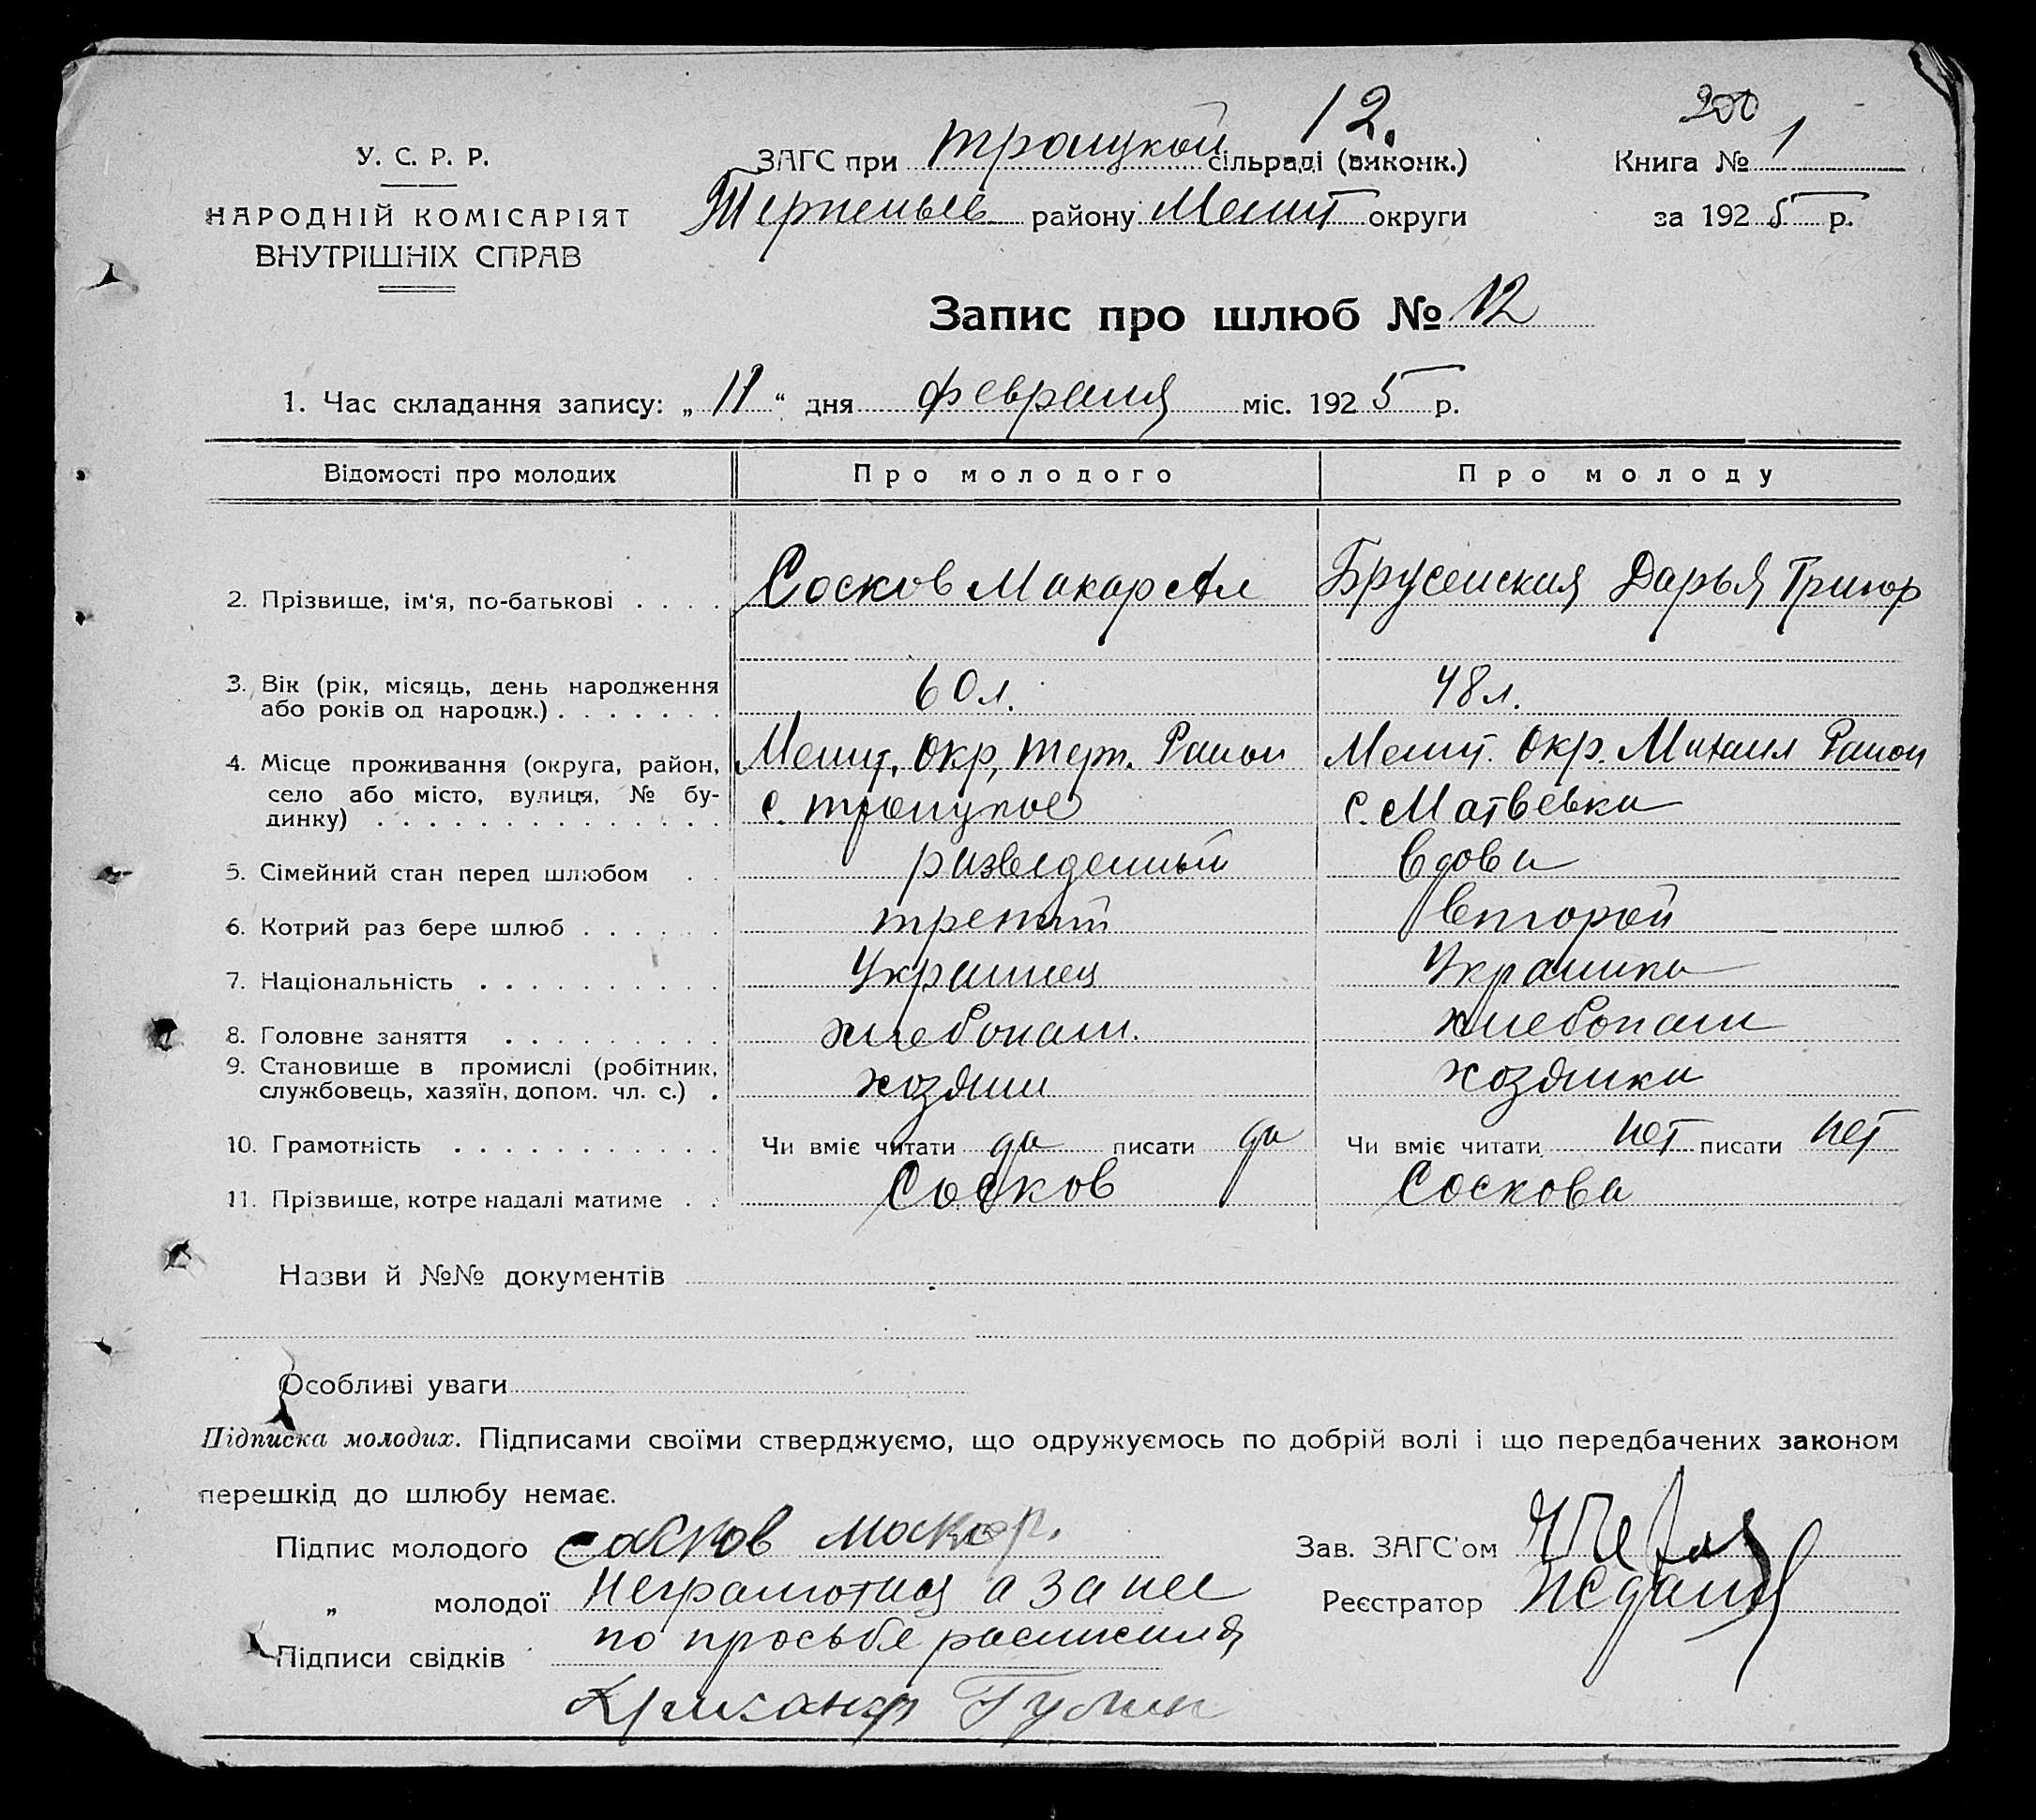 12.
200
У. С. Р. Р.
ЗАГС при Троицкой сільраді (виконк.)
Книга № 1
НАРОДНІЙ КОМІСАРІЯТ
Терпеньев району Мелит округи
за 1925 р.
ВНУТРІШНІХ СПРАВ
Запис про шлюб № 12
1. Час складання запису: „ 11 “ дня февраля міс. 1925 р.
Відомості про молодих Про молодого Про молоду
2. Прізвище, ім'я, по-батькові . . . . Сосков Макар Ал Брусенская Дарья Григор
3. Вік (рік, місяць, день народження 60 л. 48 л.
або років од народж.) . . . . . . .
4. Місце проживання (округа, район, Мелит. Окр, Терп. Район Мелит. Окр. Михаил Район
село або місто, вулиця, № бу-
динку) . . . . . . . . . . . . . . с. Троицкое с. Матвеевка
5. Сімейний стан перед шлюбом . . разведенный вдова
6. Котрий раз бере шлюб . . . . . . третий второй
7. Національність . . . . . . . . . . Украинец Украинка
8. Головне заняття . . . . . . . . . хлебопаш. хлебопаш
9. Становище в промислі (робітник, хозяин хозяйка
службовець, хазяїн, допом. чл. с.) .
10. Грамотність . . . . . . . . . . . Чи вміє читати да писати да Чи вміє читати нет писати нет
11. Прізвище, котре надалі матиме . . Сосков Соскова
Назви й №№ документів
Особливі уваги
Підписка молодих. Підписами своїми стверджуємо, що одружуємось по добрій волі і що передбачених законом
перешкід до шлюбу немає.
Підпис молодого сасков макар.
Зав. ЗАГС'ом
„ молодої Неграмотная а за нее
Реєстратор
по просьбе расписался
Підписи свідків